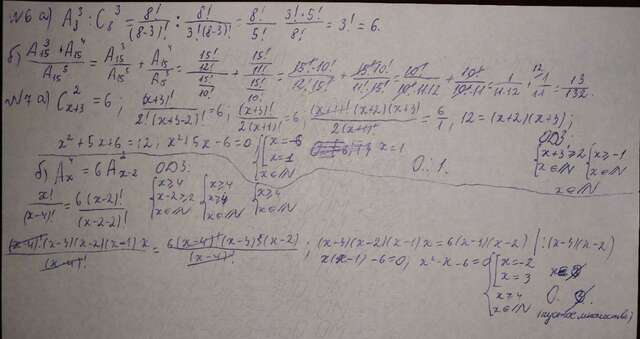 №6 а) A₈³ : C₈³ = 8!/(8-3)! : 8!/(3!(8-3)!) = 8!/5! · (3!·5!)/8! = 3! = 6.
б) (A₁₅³ + A₁₅⁴)/A₁₅⁵ = A₁₅³/A₁₅⁵ + A₁₅⁴/A₁₅⁵ = (15!/12!)/(15!/10!) + (15!/11!)/(15!/10!) = (15!·10!)/(12!·15!) + (15!·10!)/(11!·15!) = 10!/(10!·11·12) + 10!/(10!·11) = 1/(11·12) + 1/11 = 13/132.
№7 а) C²ₓ₊₃ = 6; (x+3)!/(2!(x+3-2)!) = 6; (x+3)!/(2(x+1)!) = 6; ((x+1)!(x+2)(x+3))/(2(x+1)!) = 6/1; 12 = (x+2)(x+3);
x² + 5x + 6 = 12; x² + 5x - 6 = 0; { [ x = -6 x = 1 x ∈ N x = 1 О.: 1. ОДЗ: { x+3 ≥ 2 x ∈ N { x ≥ -1 x ∈ N x ∈ N
б) Aₓ⁴ = 6A²ₓ₋₂ ОДЗ:
x!/(x-4)! = 6(x-2)!/(x-2-2)! { x ≥ 4 x-2 ≥ 2 x ∈ N { x ≥ 4 x ≥ 4 x ∈ N { x ≥ 4 x ∈ N
((x-4)!(x-3)(x-2)(x-1)x)/(x-4)! = (6(x-4)!(x-3)(x-2))/(x-4)! ; (x-3)(x-2)(x-1)x = 6(x-3)(x-2) | :(x-3)(x-2)
x(x-1) - 6 = 0; x² - x - 6 = 0 { [ x = -2 x = 3 x ≥ 4 x ∈ N
О. ∅.
(пустое множество)